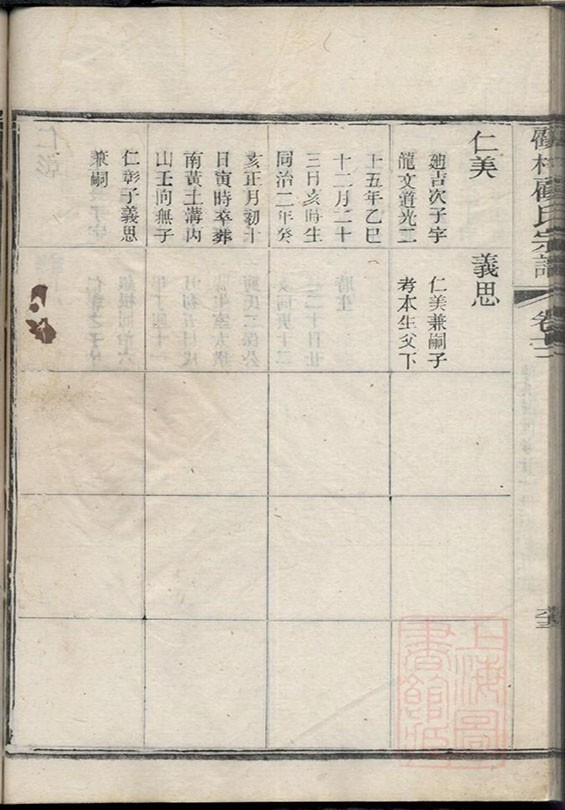 顧氏宗譜
仁美
廸吉次子字
龍文道光二
十五年乙巳
十二月二十
三日亥時生
同治二年癸
亥正月初十
日寅時卒葬
南黃土溝內
山壬向無子
仁彰子義思
兼嗣
義思
仁美兼嗣子
考本生父下
上海圖
書館藏